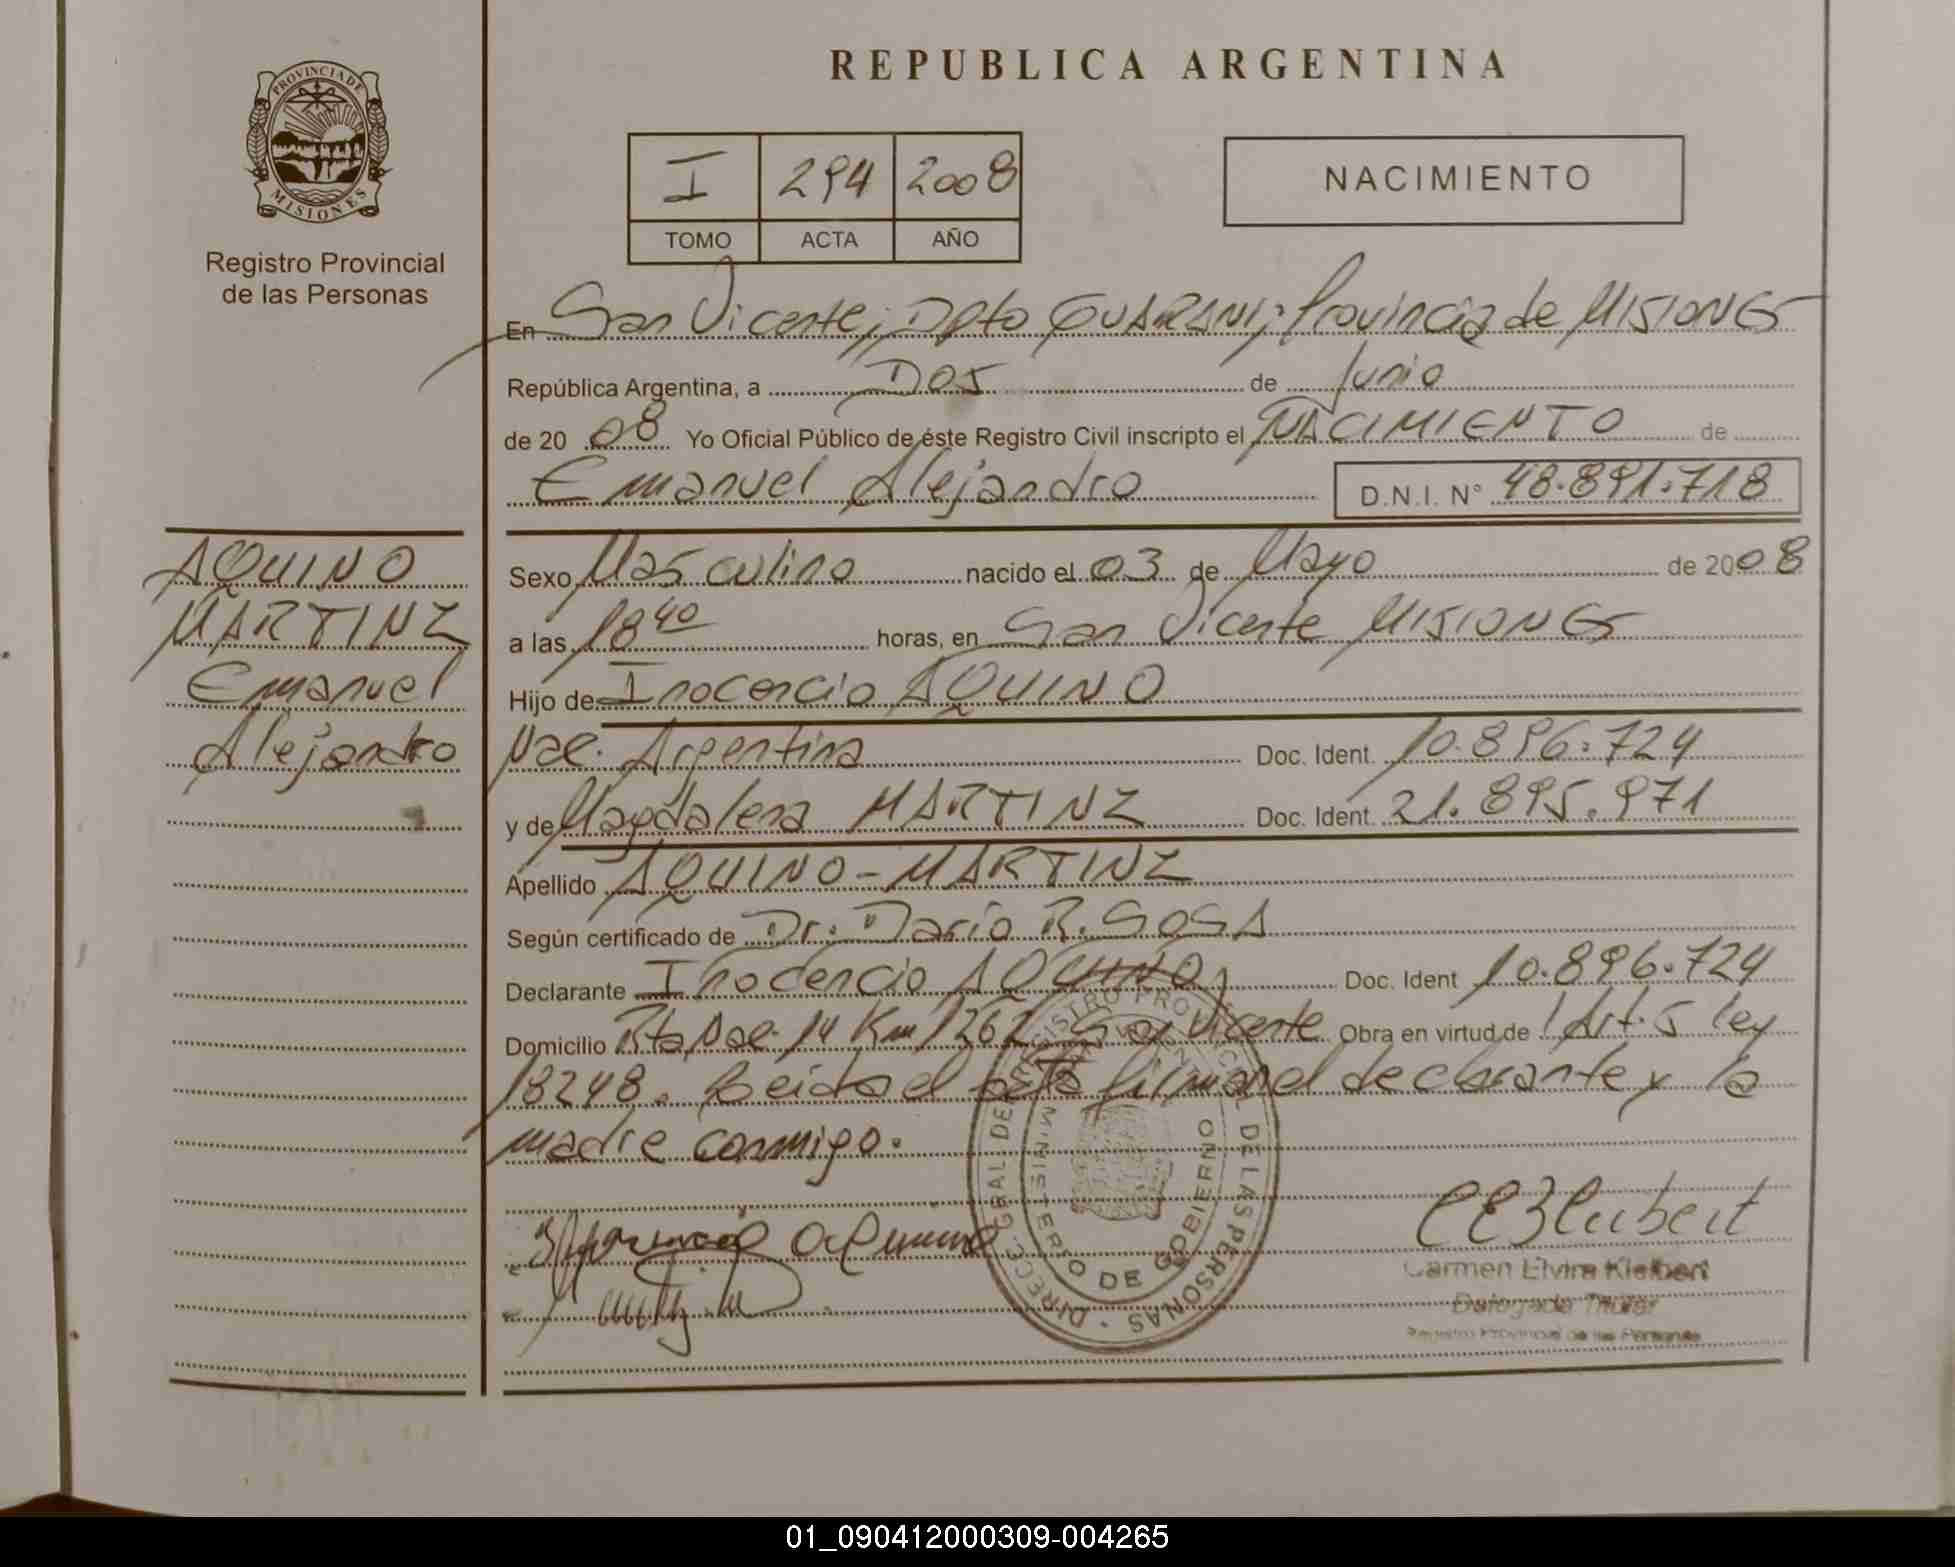 PROVINCIA DE
MISIONES
Registro Provincial
de las Personas
REPUBLICA ARGENTINA
I 294 2008
TOMO ACTA AÑO
NACIMIENTO
En San Vicente, Dpto GUARANI, Provincia de MISIONES
República Argentina, a DOS de Junio
de 2008 Yo Oficial Público de éste Registro Civil inscripto el NACIMIENTO de
Emanuel Alejandro D.N.I. N° 48.891.718
AQUINO
MARTINZ
Emanuel
Alejandro
Sexo Masculino nacido el 03 de Mayo de 2008
a las 18 40 horas, en San Vicente MISIONES
Hijo de Inocencio AQUINO
Nac. Argentina Doc. Ident. 10.896.724
y de Magdalena MARTINZ Doc. Ident. 21.895.971
Apellido AQUINO-MARTINZ
Según certificado de Dr. Dario R. SOSA
Declarante Inocencio AQUINO Doc. Ident 10.896.724
Domicilio Rta Nac. 14 Km 1262 San Vicente Obra en virtud de Art. 5 ley
18248. Leida el acta firman el declarante y la
madre conmigo.
DIRECC. GRAL. DE REGISTRO PROVINCIAL DE LAS PERSONAS
MINISTERIO DE GOBIERNO
Carmen Elvira Kleibert
Delegada Titular
Registro Provincial de las Personas
01_090412000309-004265